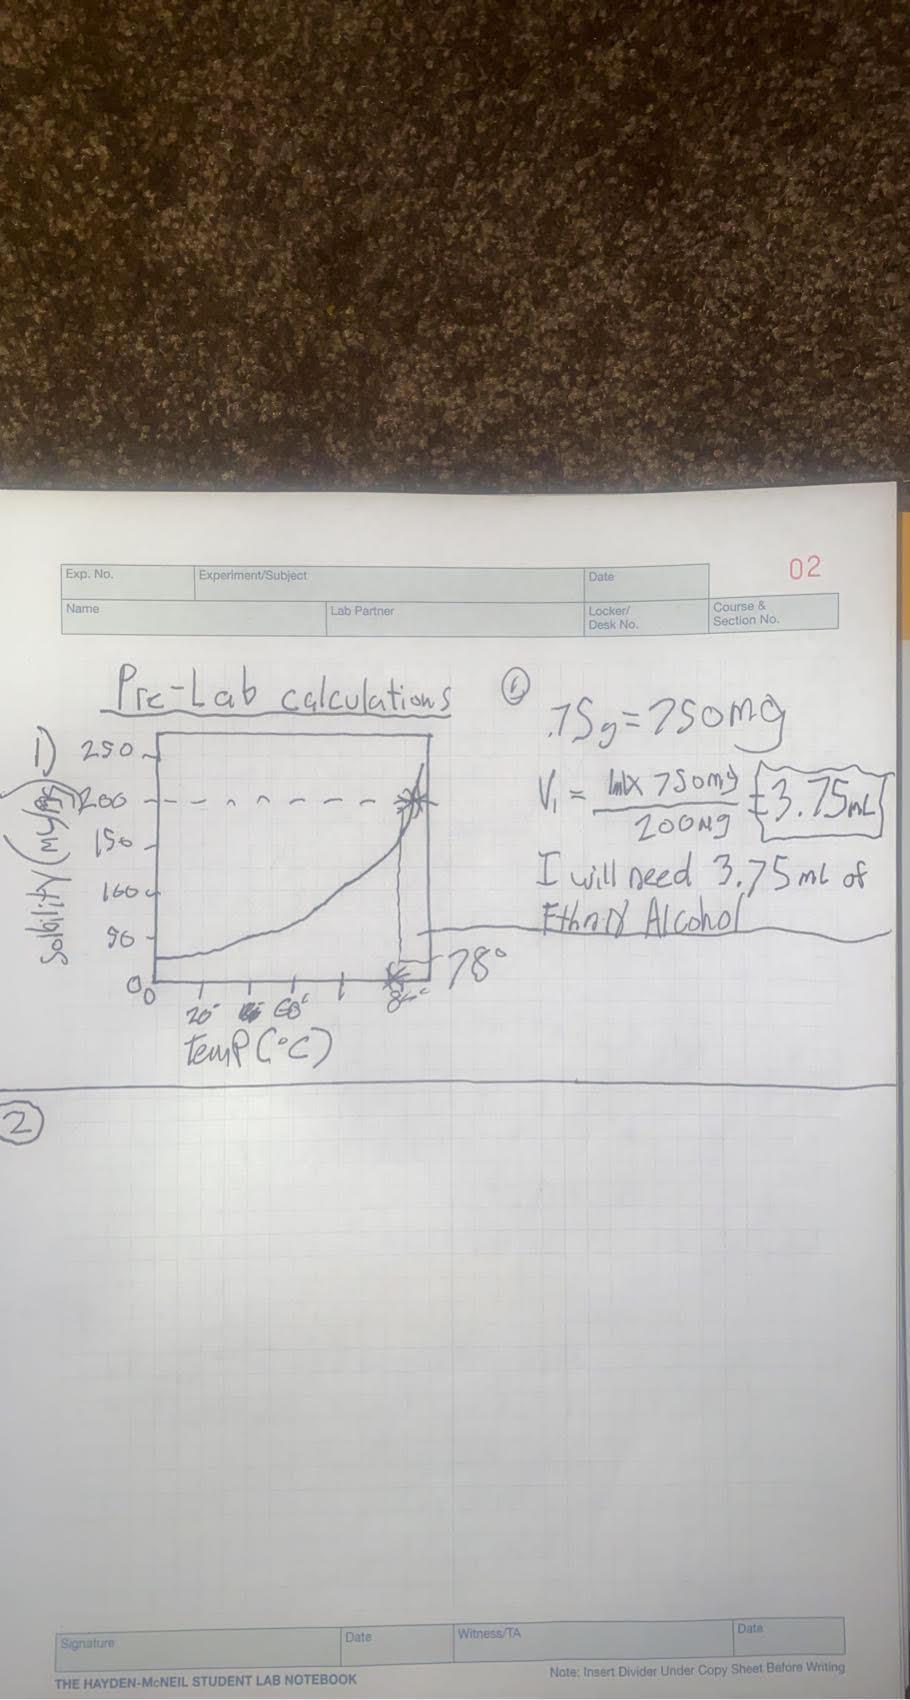 02
Exp. No. Experiment/Subject Date
Name Lab Partner Locker/ Desk No. Course & Section No.
Pre-Lab calculations
1)
250
200
150
100
50
0
0
20°
60°
80°
78°
Solbility
temp (°C)
1
.75g = 750mg
V1 = 1ml x 750mg / 200mg = 3.75mL
I will need 3.75 mL of
Alcohol
2
Signature Date Witness/TA Date
THE HAYDEN-McNEIL STUDENT LAB NOTEBOOK
Note: Insert Divider Under Copy Sheet Before Writing